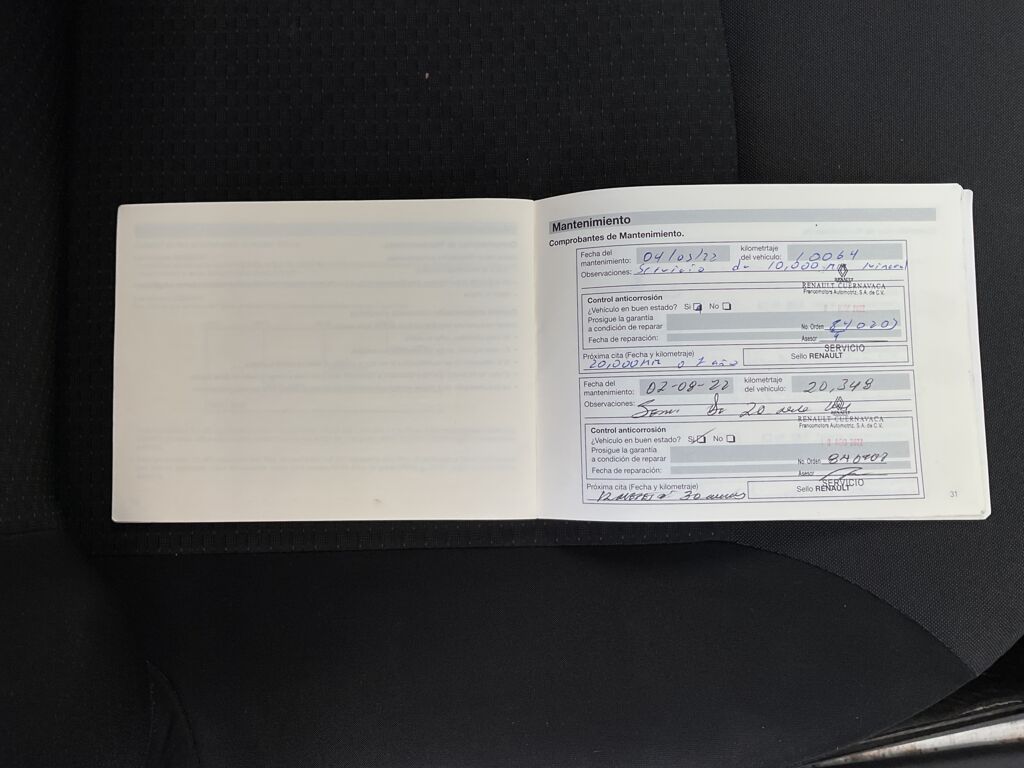 Mantenimiento
Comprobantes de Mantenimiento.
Fecha del mantenimiento: 04/03/22 kilometrtaje del vehículo: 10064
Observaciones: Servicio de 10,000 KM Mineral
RENAULT
RENAULT CUERNAVACA
Francomotors Automotriz, S.A. de C.V.
Control anticorrosión
¿Vehículo en buen estado? Si No
Prosigue la garantía
a condición de reparar No. Orden
Fecha de reparación: Asesor
SERVICIO
Próxima cita (Fecha y kilometraje) Sello RENAULT
20,000 KM o 1 año
Fecha del mantenimiento: 02-08-22 kilometrtaje del vehículo: 20,348
Observaciones: 20
RENAULT
RENAULT CUERNAVACA
Francomotors Automotriz, S.A. de C.V.
Control anticorrosión
¿Vehículo en buen estado? Si No
Prosigue la garantía
a condición de reparar No. Orden
Fecha de reparación: Asesor
SERVICIO
Próxima cita (Fecha y kilometraje) Sello RENAULT
31